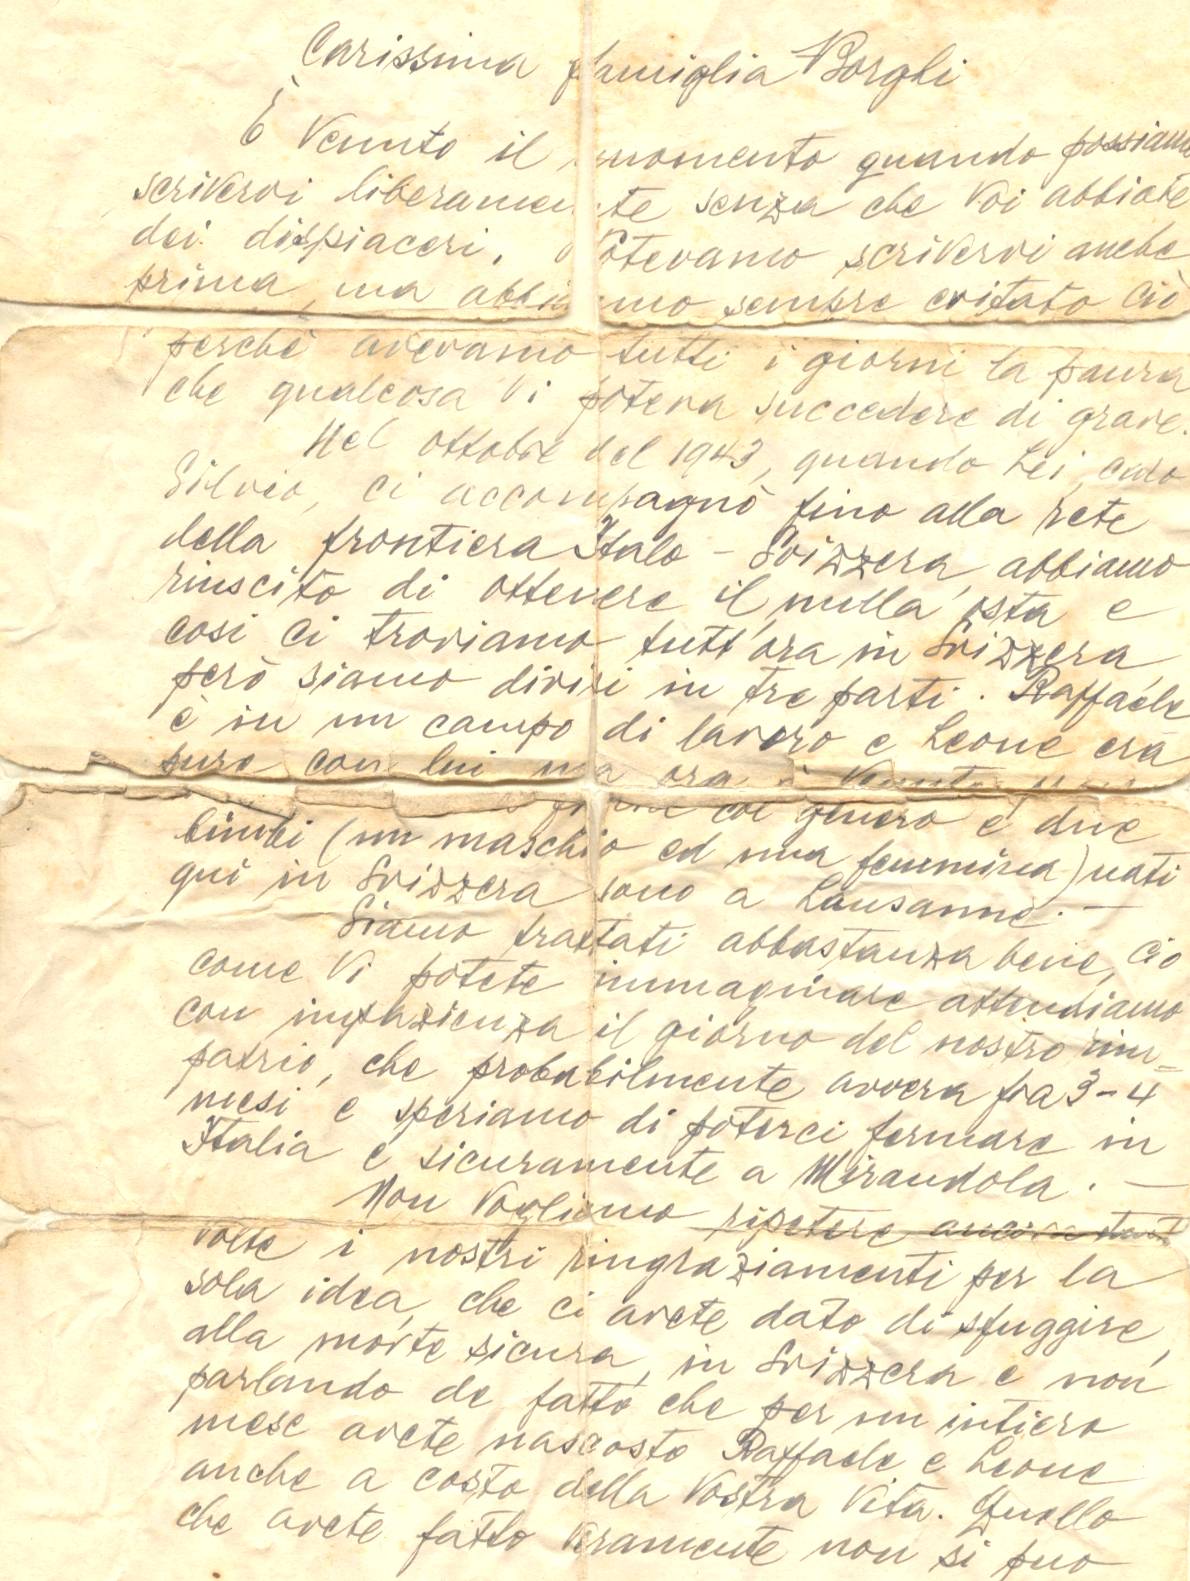 Carissima famiglia Borghi
È venuto il momento quando possiamo
scrivervi liberamente senza che voi abbiate
dei dispiaceri. Potevamo scrivervi anche
prima, ma abbiamo sempre evitato ciò
perchè avevamo tutti i giorni la paura
che qualcosa Vi poteva succedere di grave.
Nel ottobre del 1943, quando Lei, caro
Silvio, ci accompagnò fino alla rete
della frontiera Italo - Svizzera, abbiamo
riuscito di ottenere il nulla osta e
cosi ci troviamo tutt'ora in Svizzera
però siamo divisi in tre parti. Raffaele
è in un campo di lavoro e Leone era
pure con lui ma ora è venuto
col genero e due
bimbi (un maschio ed una femmina) nati
qui in Svizzera sono a Lausanne. —
Siamo trattati abbastanza bene, ciò
come Vi potete immaginare attendiamo
con impazienza il giorno del nostro rim-
patrio, che probabilmente avvera fra 3-4
mesi e speriamo di poterci fermare in
Italia e sicuramente a Mirandola. —
Non vogliamo ripetere ancora
volte i nostri ringraziamenti per la
sola idea, che ci avete dato di sfuggire,
alla morte sicura, in Svizzera e non
parlando de fatto che per un intiero
mese avete nascosto Raffaele e Leone
anche a costo della Vostra Vita. Quello
che avete fatto veramente non si può